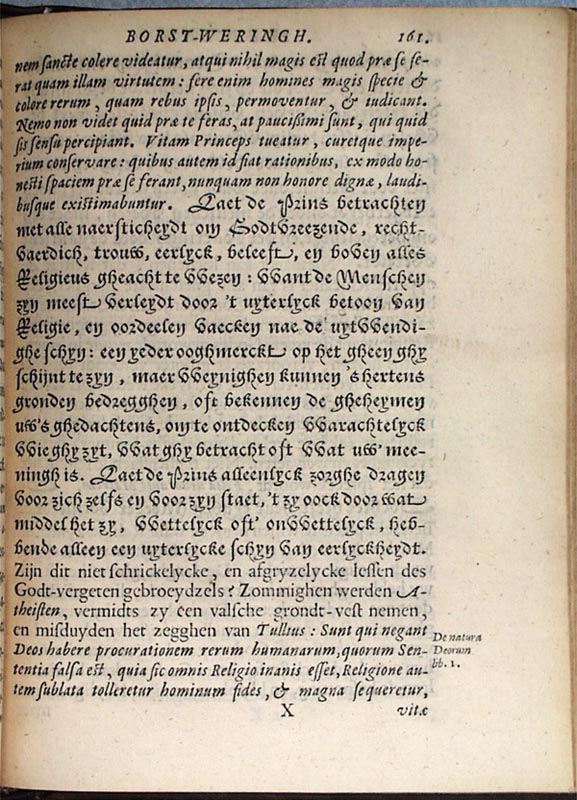 BORST-WERINGH. 161.
nem sancte colere videatur, atqui nihil magis est quod præ se fe-
rat quam illam virtutem : fere enim homines magis specie &
colore rerum, quam rebus ipsis, permoventur, & iudicant.
Nemo non videt quid præ te feras, at paucißimi sunt, qui quid
sis sensu percipiant. Vitam Princeps tueatur, curetque impe-
rium conservare : quibus autem id fiat rationibus, ex modo ho-
nesti spaciem præ se ferant, nunquam non honore dignæ, laudi-
busque existimabuntur. Laet de Prins betrachten
met alle naersticheydt om Godtvreezende, recht-
vaerdich, trouw, eerlyck, beleeft, en boven alles
Religieus gheacht te wezen : Want de Menschen
zyn meest verleydt door 't uyterlyck betoon van
Religie, en oordeelen vaecken nae de uytwendi-
ghe schyn : een yeder ooghmerckt op het gheen ghy
schijnt te zyn, maer weynighen kunnen 's hertens
gronden bedregghen, oft bekennen de gheheymen
uw's ghedachtens, om te ontdecken warachtelyck
wie ghy zyt, wat ghy betracht oft wat uw' mee-
ningh is. Laet de Prins alleenlyck zorghe dragen
voor zich zelfs en voor zyn staet, 't zy oock door wat
middel het zy, wettelyck oft' onwettelyck, heb-
bende alleen een uyterlycke schyn van eerlyckheydt.
Zijn dit niet schrickelycke, en afgryzelycke lessen des
Godt-vergeten gebroeydzels ? Zommighen werden A-
theisten, vermidts zy een valsche grondt-vest nemen,
en misduyden het zegghen van Tullius : Sunt qui negant
Deos habere procurationem rerum humanarum, quorum Sen-
tentia falsa est, quia sic omnis Religio inanis esset, Religione au-
tem sublata tolleretur hominum fides, & magna sequeretur,
De natura
Deorum
lib. 1.
X vitæ